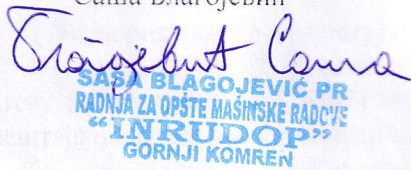 Саша Благојевић
Благојевић Саша
SAŠA BLAGOJEVIĆ PR
RADNJA ZA OPŠTE MAŠINSKE RADOVE
“INRUDOP”
GORNJI KOMREN